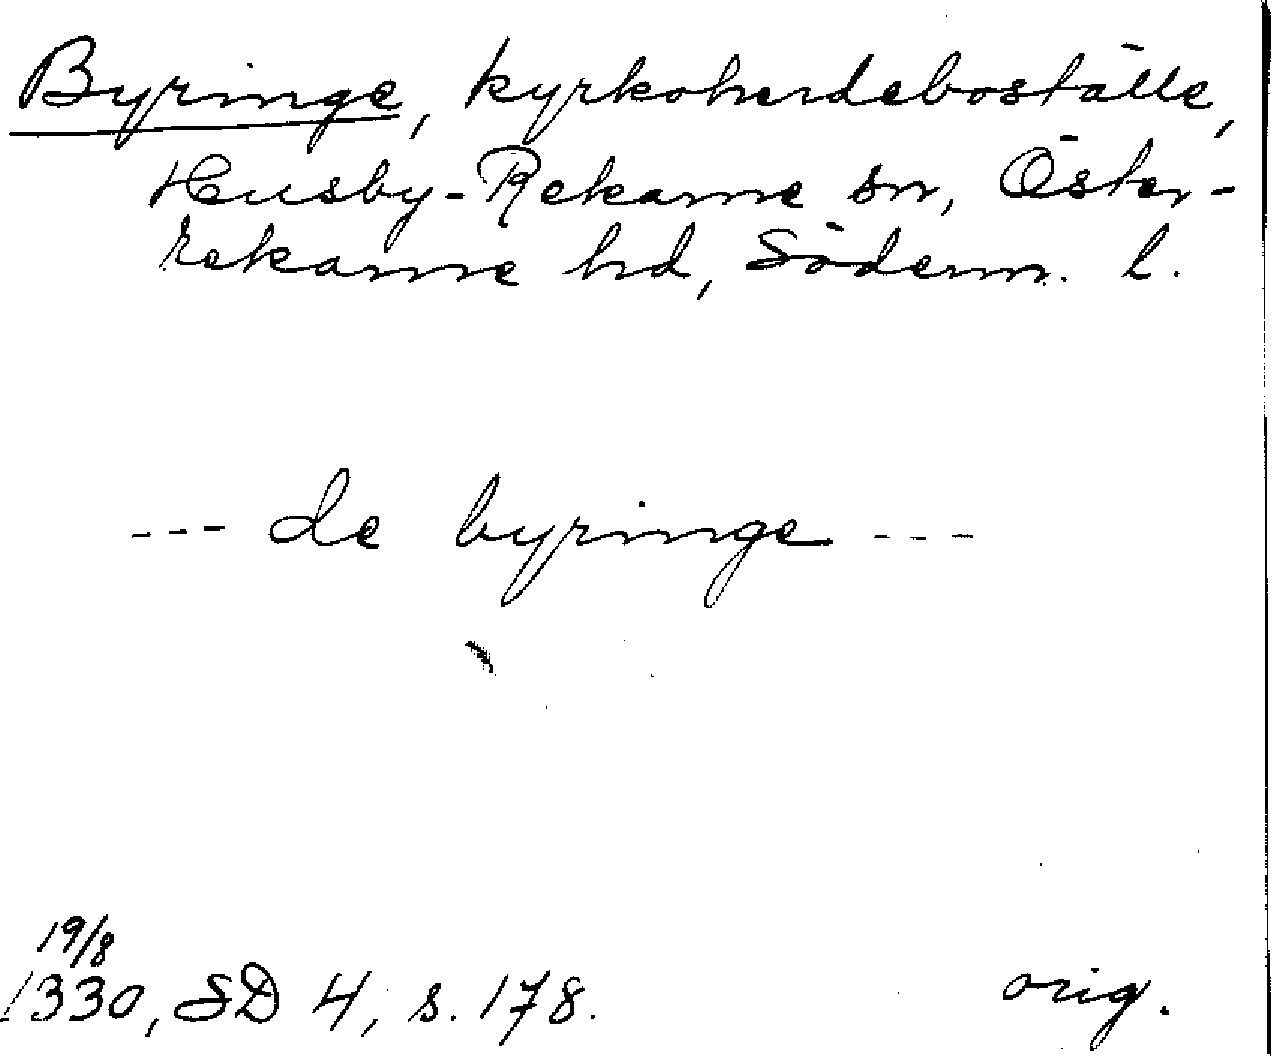 Byringe, kyrkoherdeboställe,
Husby-Rekarne sn, Öster-
rekarne hd, Söderm. l.
--- de byringe ---
19/8
1330, SD 4, s. 178.
orig.